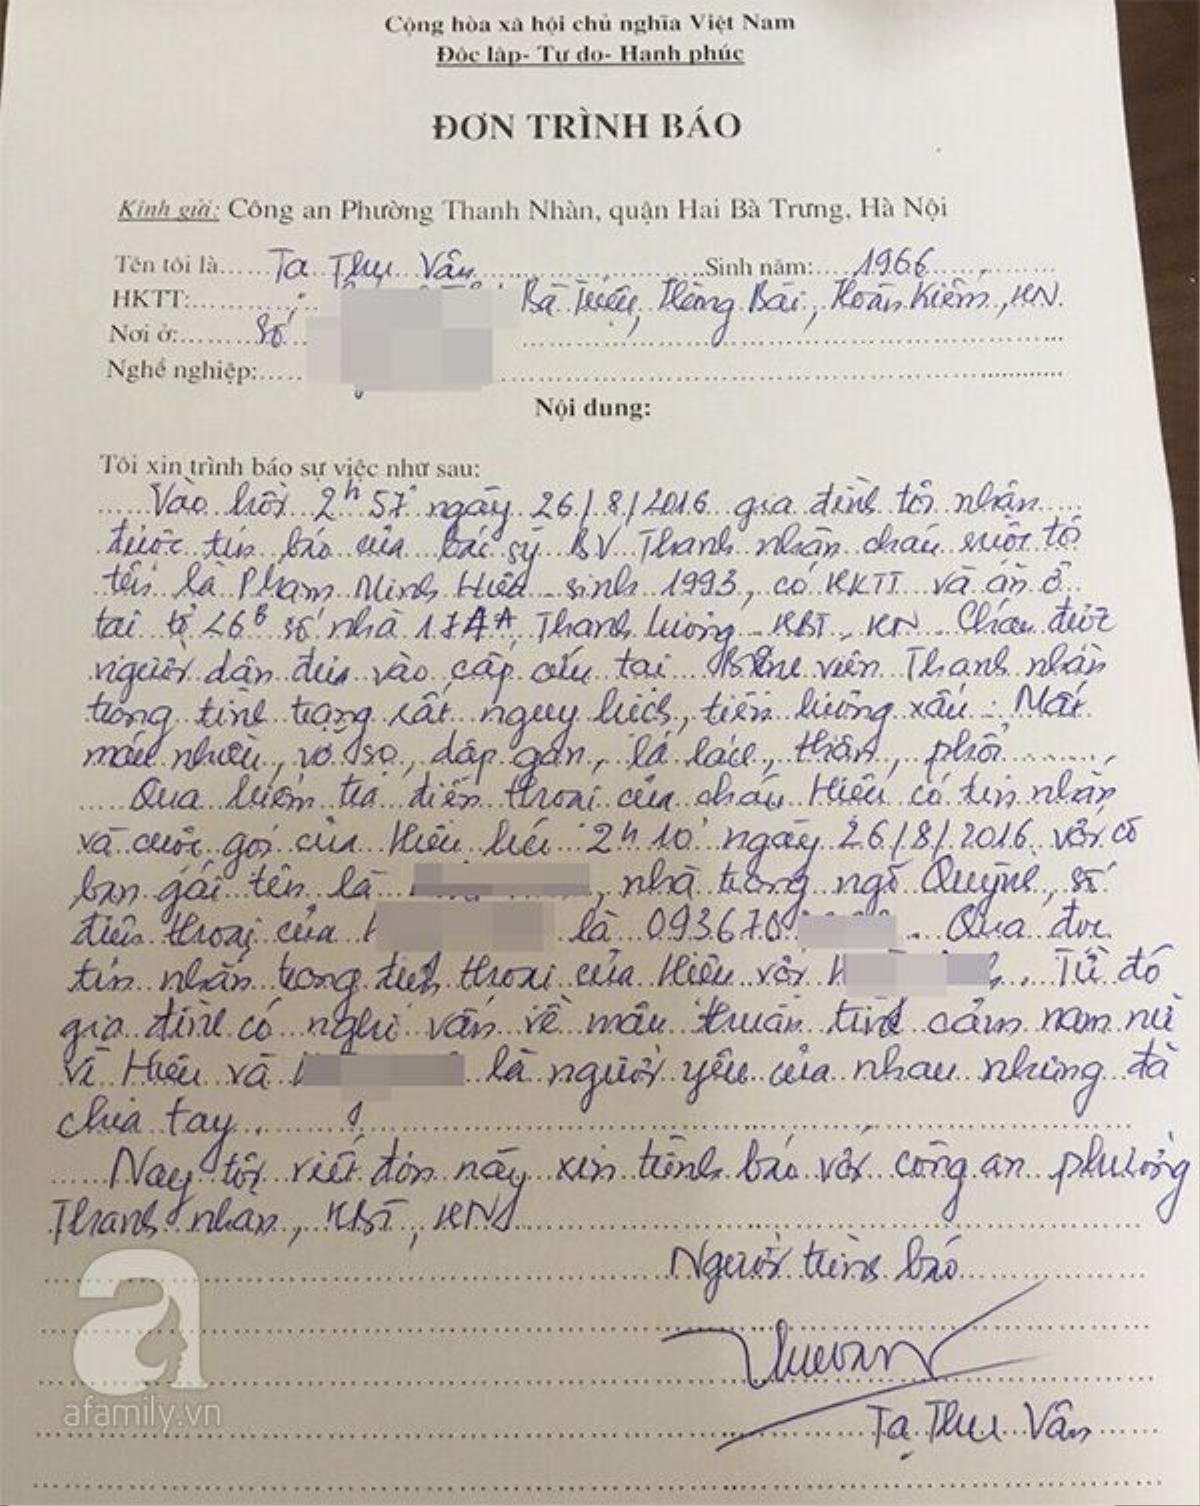 Cộng hòa xã hội chủ nghĩa Việt Nam
Độc lập- Tự do- Hạnh phúc
ĐƠN TRÌNH BÁO
Kính gửi: Công an Phường Thanh Nhàn, quận Hai Bà Trưng, Hà Nội
Tên tôi là......Tạ Thu Vân..............Sinh năm:....1966..............
HKTT:.......... Bà Triệu, Hàng Bài, Hoàn Kiếm, HN.
Nơi ở:.........Số
Nghề nghiệp:.....
Nội dung:
Tôi xin trình báo sự việc như sau:
Vào hồi 2h 57' ngày 26/8/2016 gia đình tôi nhận
được tin báo của bác sỹ BV Thanh nhàn cháu ruột tôi
tên là Phạm Minh Hiếu sinh 1993, có HKTT và ăn ở
tại tổ 26B số nhà 17A, Thanh lương HBT, HN. Cháu được
người dân đưa vào cấp cứu tại Bệnh viện Thanh nhàn
trong tình trạng rất nguy kịch, tiên lượng xấu: Mất
máu nhiều, vỡ sọ, dập gan, lá lách, thận, phổi.......
Qua kiểm tra điện thoại của cháu Hiếu có tin nhắn
và cuộc gọi của Hiếu lúc 2h 10' ngày 26/8/2016 với cô
bạn gái tên là , nhà trong ngõ Quỳnh, số
điện thoại của H là 093670 . Qua đọc
tin nhắn trong điện thoại của Hiếu với H . Từ đó
gia đình có nghi vấn về mâu thuẫn tình cảm nam nữ
vì Hiếu và là người yêu của nhau nhưng đã
chia tay.
Nay tôi viết đơn này xin trình báo với công an phường
Thanh nhàn, HBT, HN.
Người trình báo
Tạ Thu Vân
afamily.vn